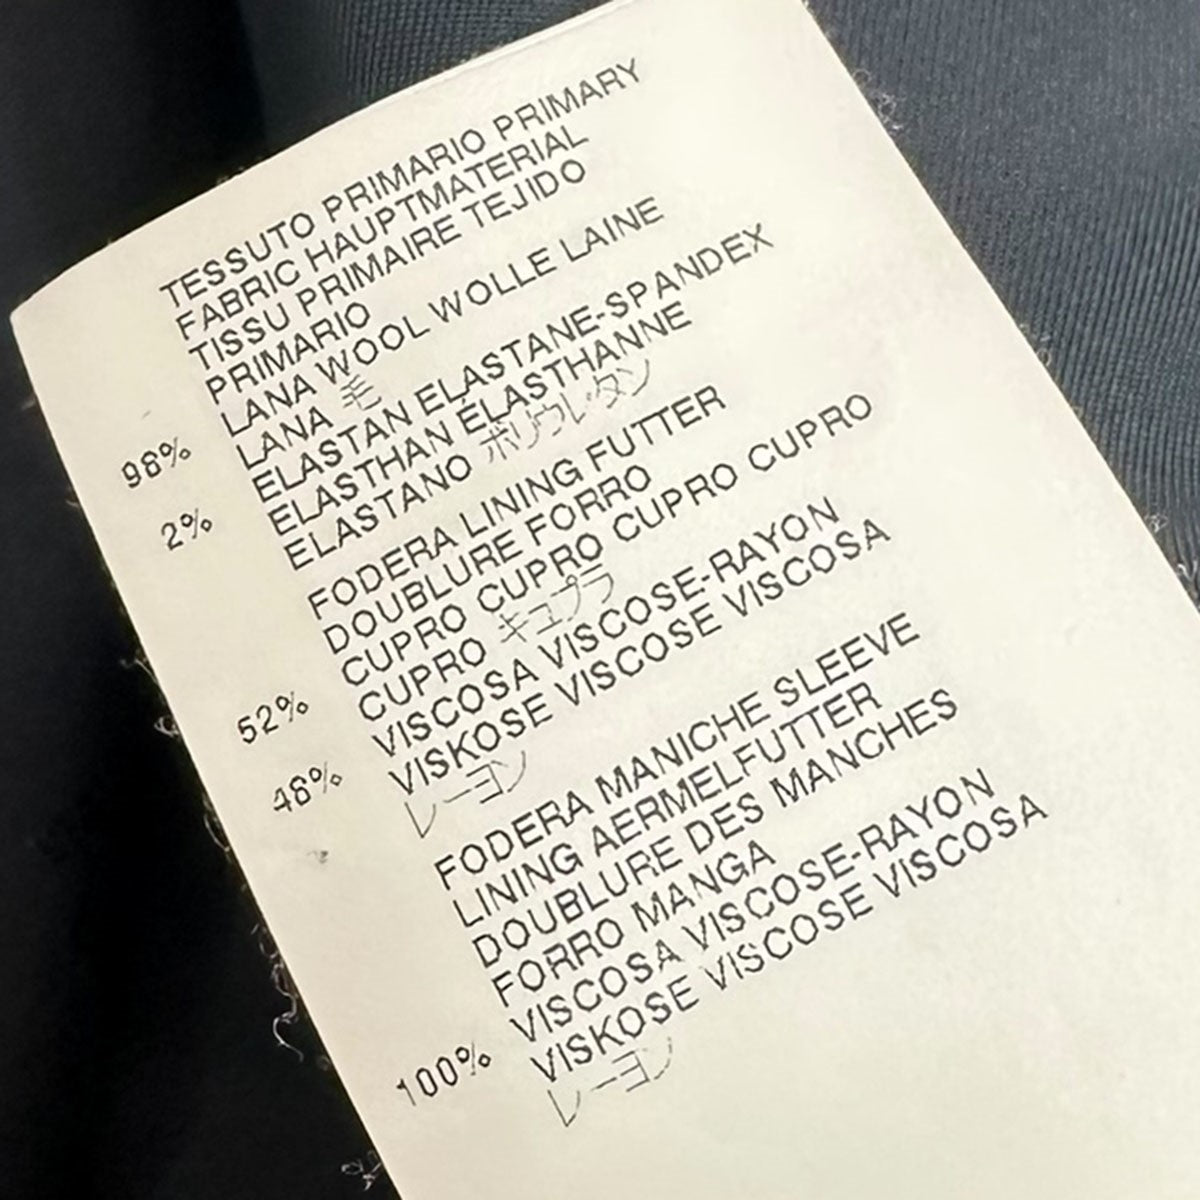 TESSUTO PRIMARIO PRIMARY
FABRIC HAUPTMATERIAL
TISSU PRIMAIRE TEJIDO
PRIMARIO
98% LANA WOOL WOLLE LAINE
LANA 毛
2% ELASTAN ELASTANE-SPANDEX
ELASTHAN ÉLASTHANNE
ELASTANO ポリウレタン
FODERA LINING FUTTER
DOUBLURE FORRO
52% CUPRO CUPRO CUPRO CUPRO
CUPRO キュプラ
48% VISCOSA VISCOSE-RAYON
VISKOSE VISCOSE VISCOSA
レーヨン
FODERA MANICHE SLEEVE
LINING AERMELFUTTER
DOUBLURE DES MANCHES
FORRO MANGA
100% VISCOSA VISCOSE-RAYON
VISKOSE VISCOSE VISCOSA
レーヨン